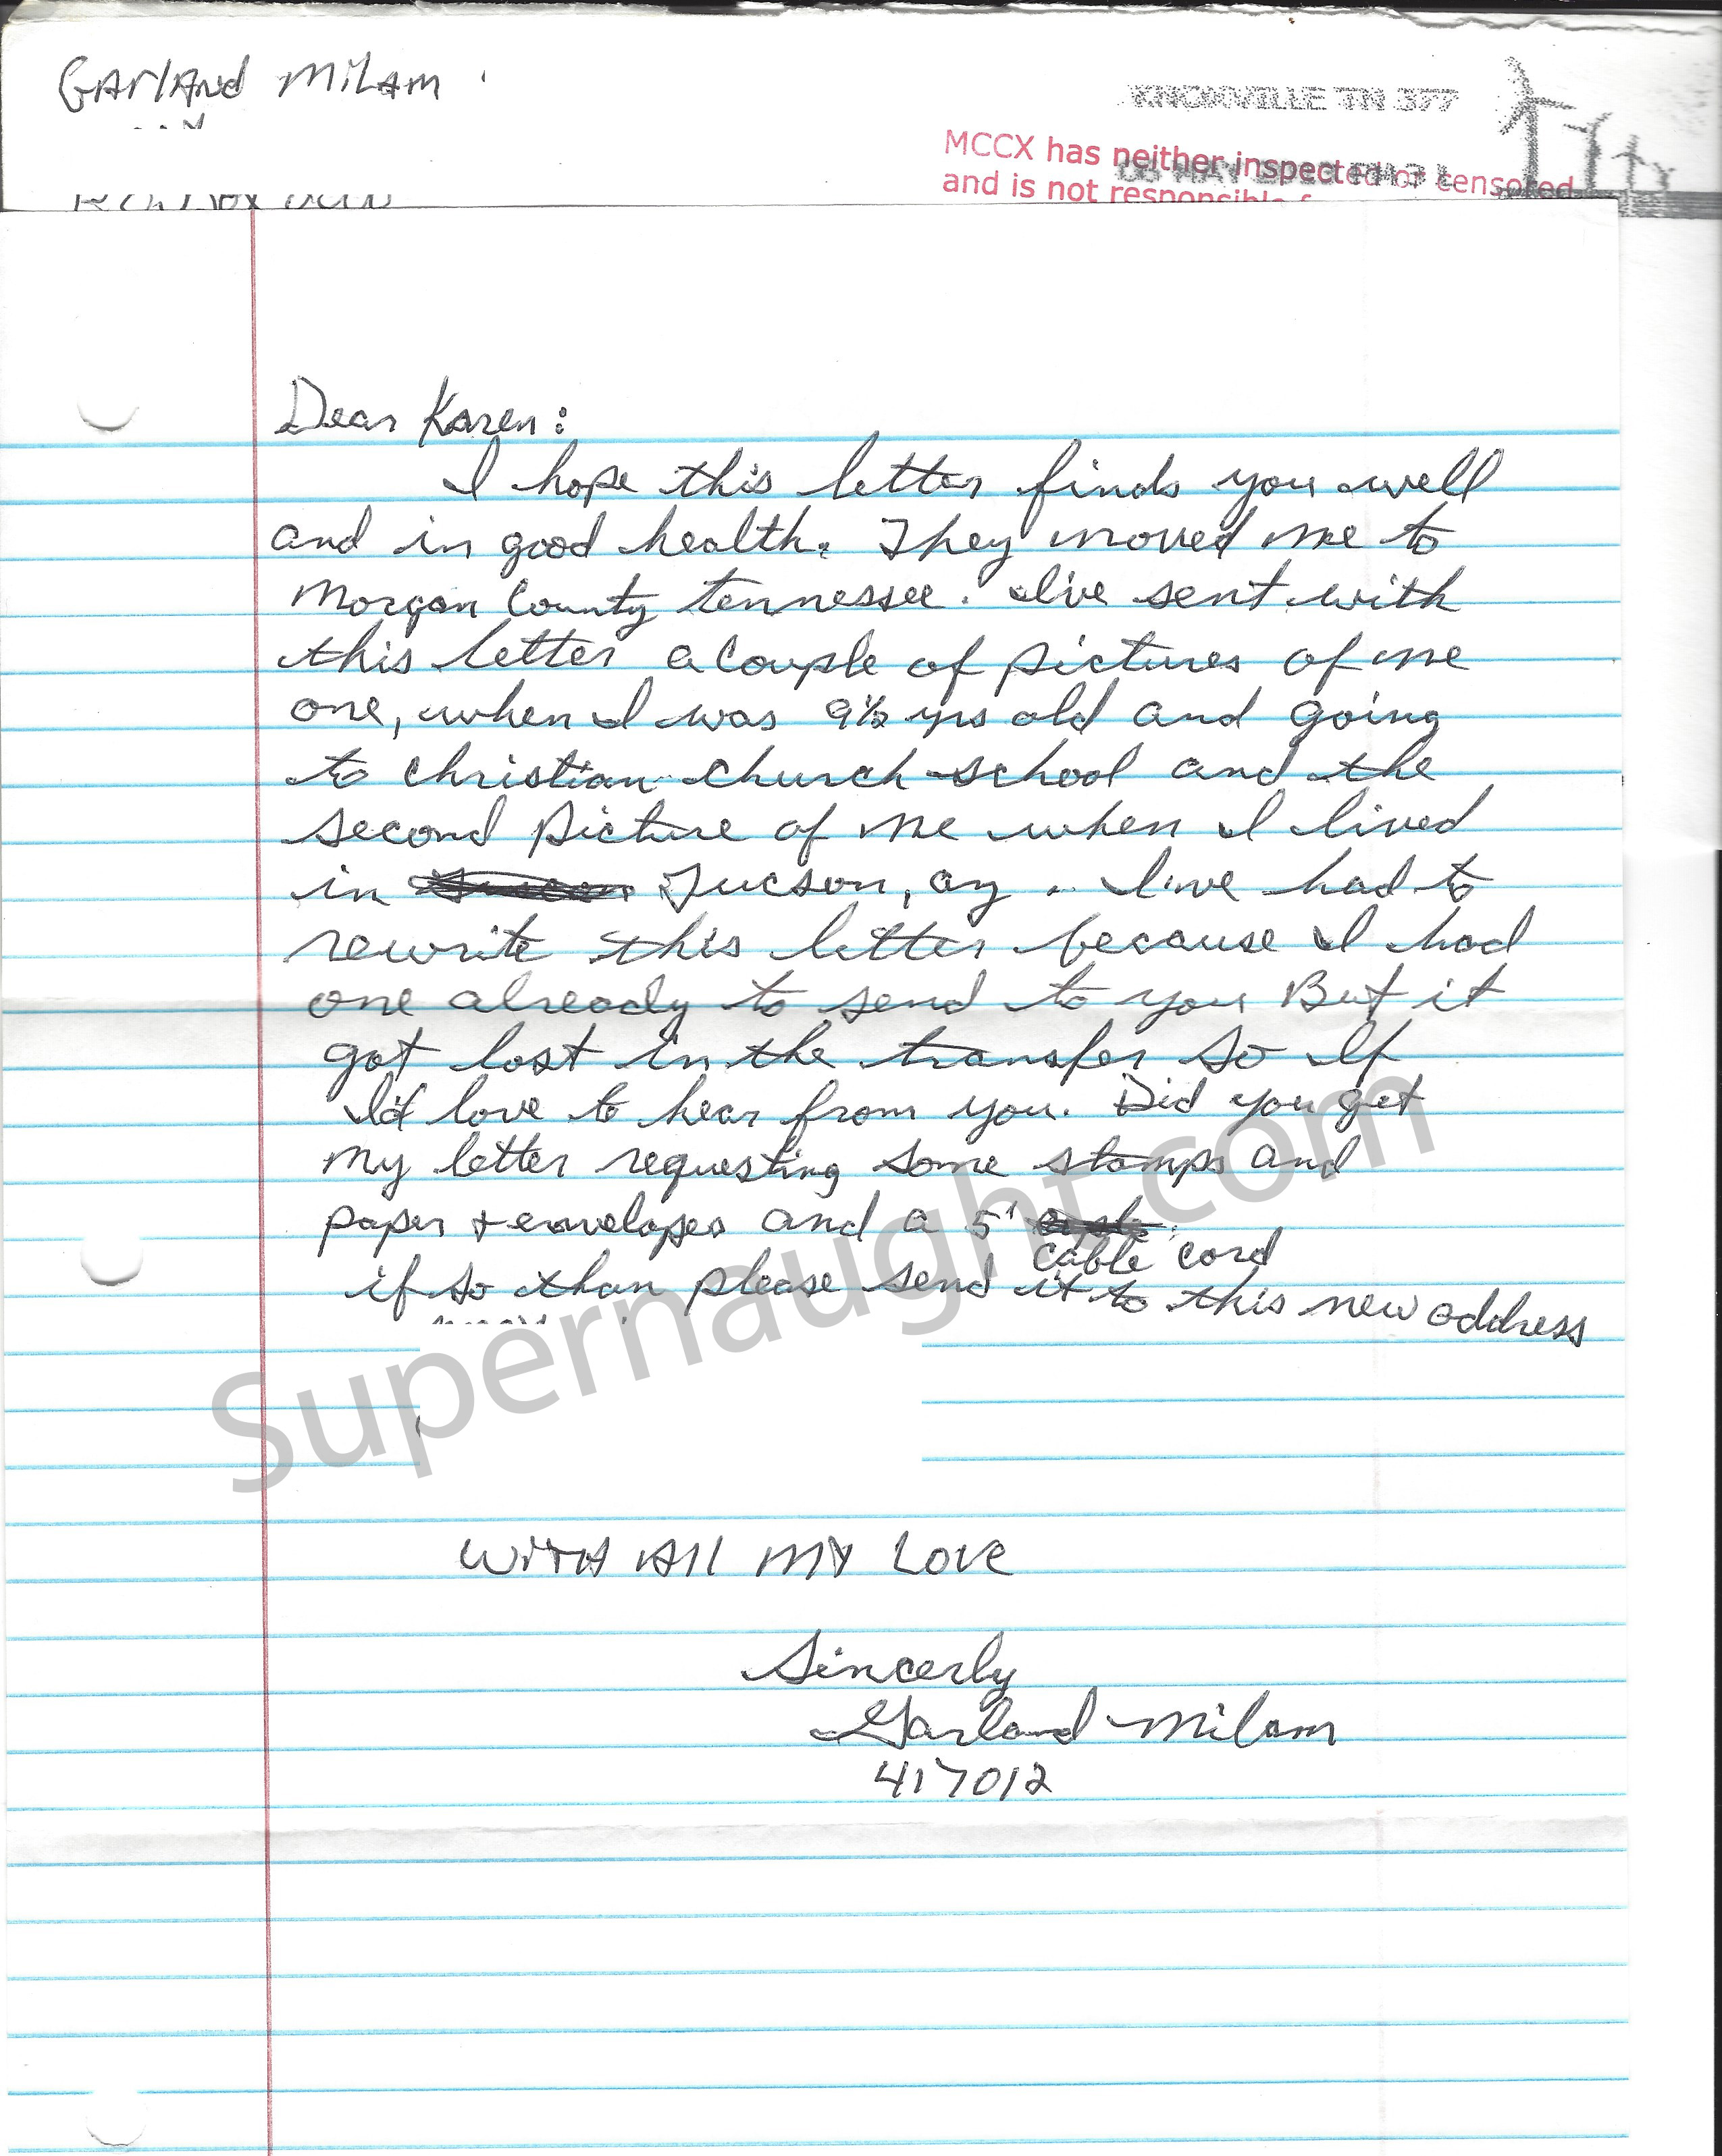 Garland Milam
KNOXVILLE TN 377
MCCX has neither inspected or censored
and is not responsible
Dear Karen:
I hope this letter finds you well
and in good health. They moved me to
Morgan County tennessee. I've sent with
this letter a couple of pictures of me
one, when I was 9½ yrs old and going
to christian church school and the
second picture of me when I lived
in Tucson, az. I've had to
rewrite this letter because I had
one already to send to you But it
got lost in the transfer so If
I'd love to hear from you. Did you get
my letter requesting some stamps and
paper + envelopes and a 5'
cable cord
if so than please send it to this new address
Supernaught.com
WITH All MY LOVE
Sincerly
Garland Milam
417012